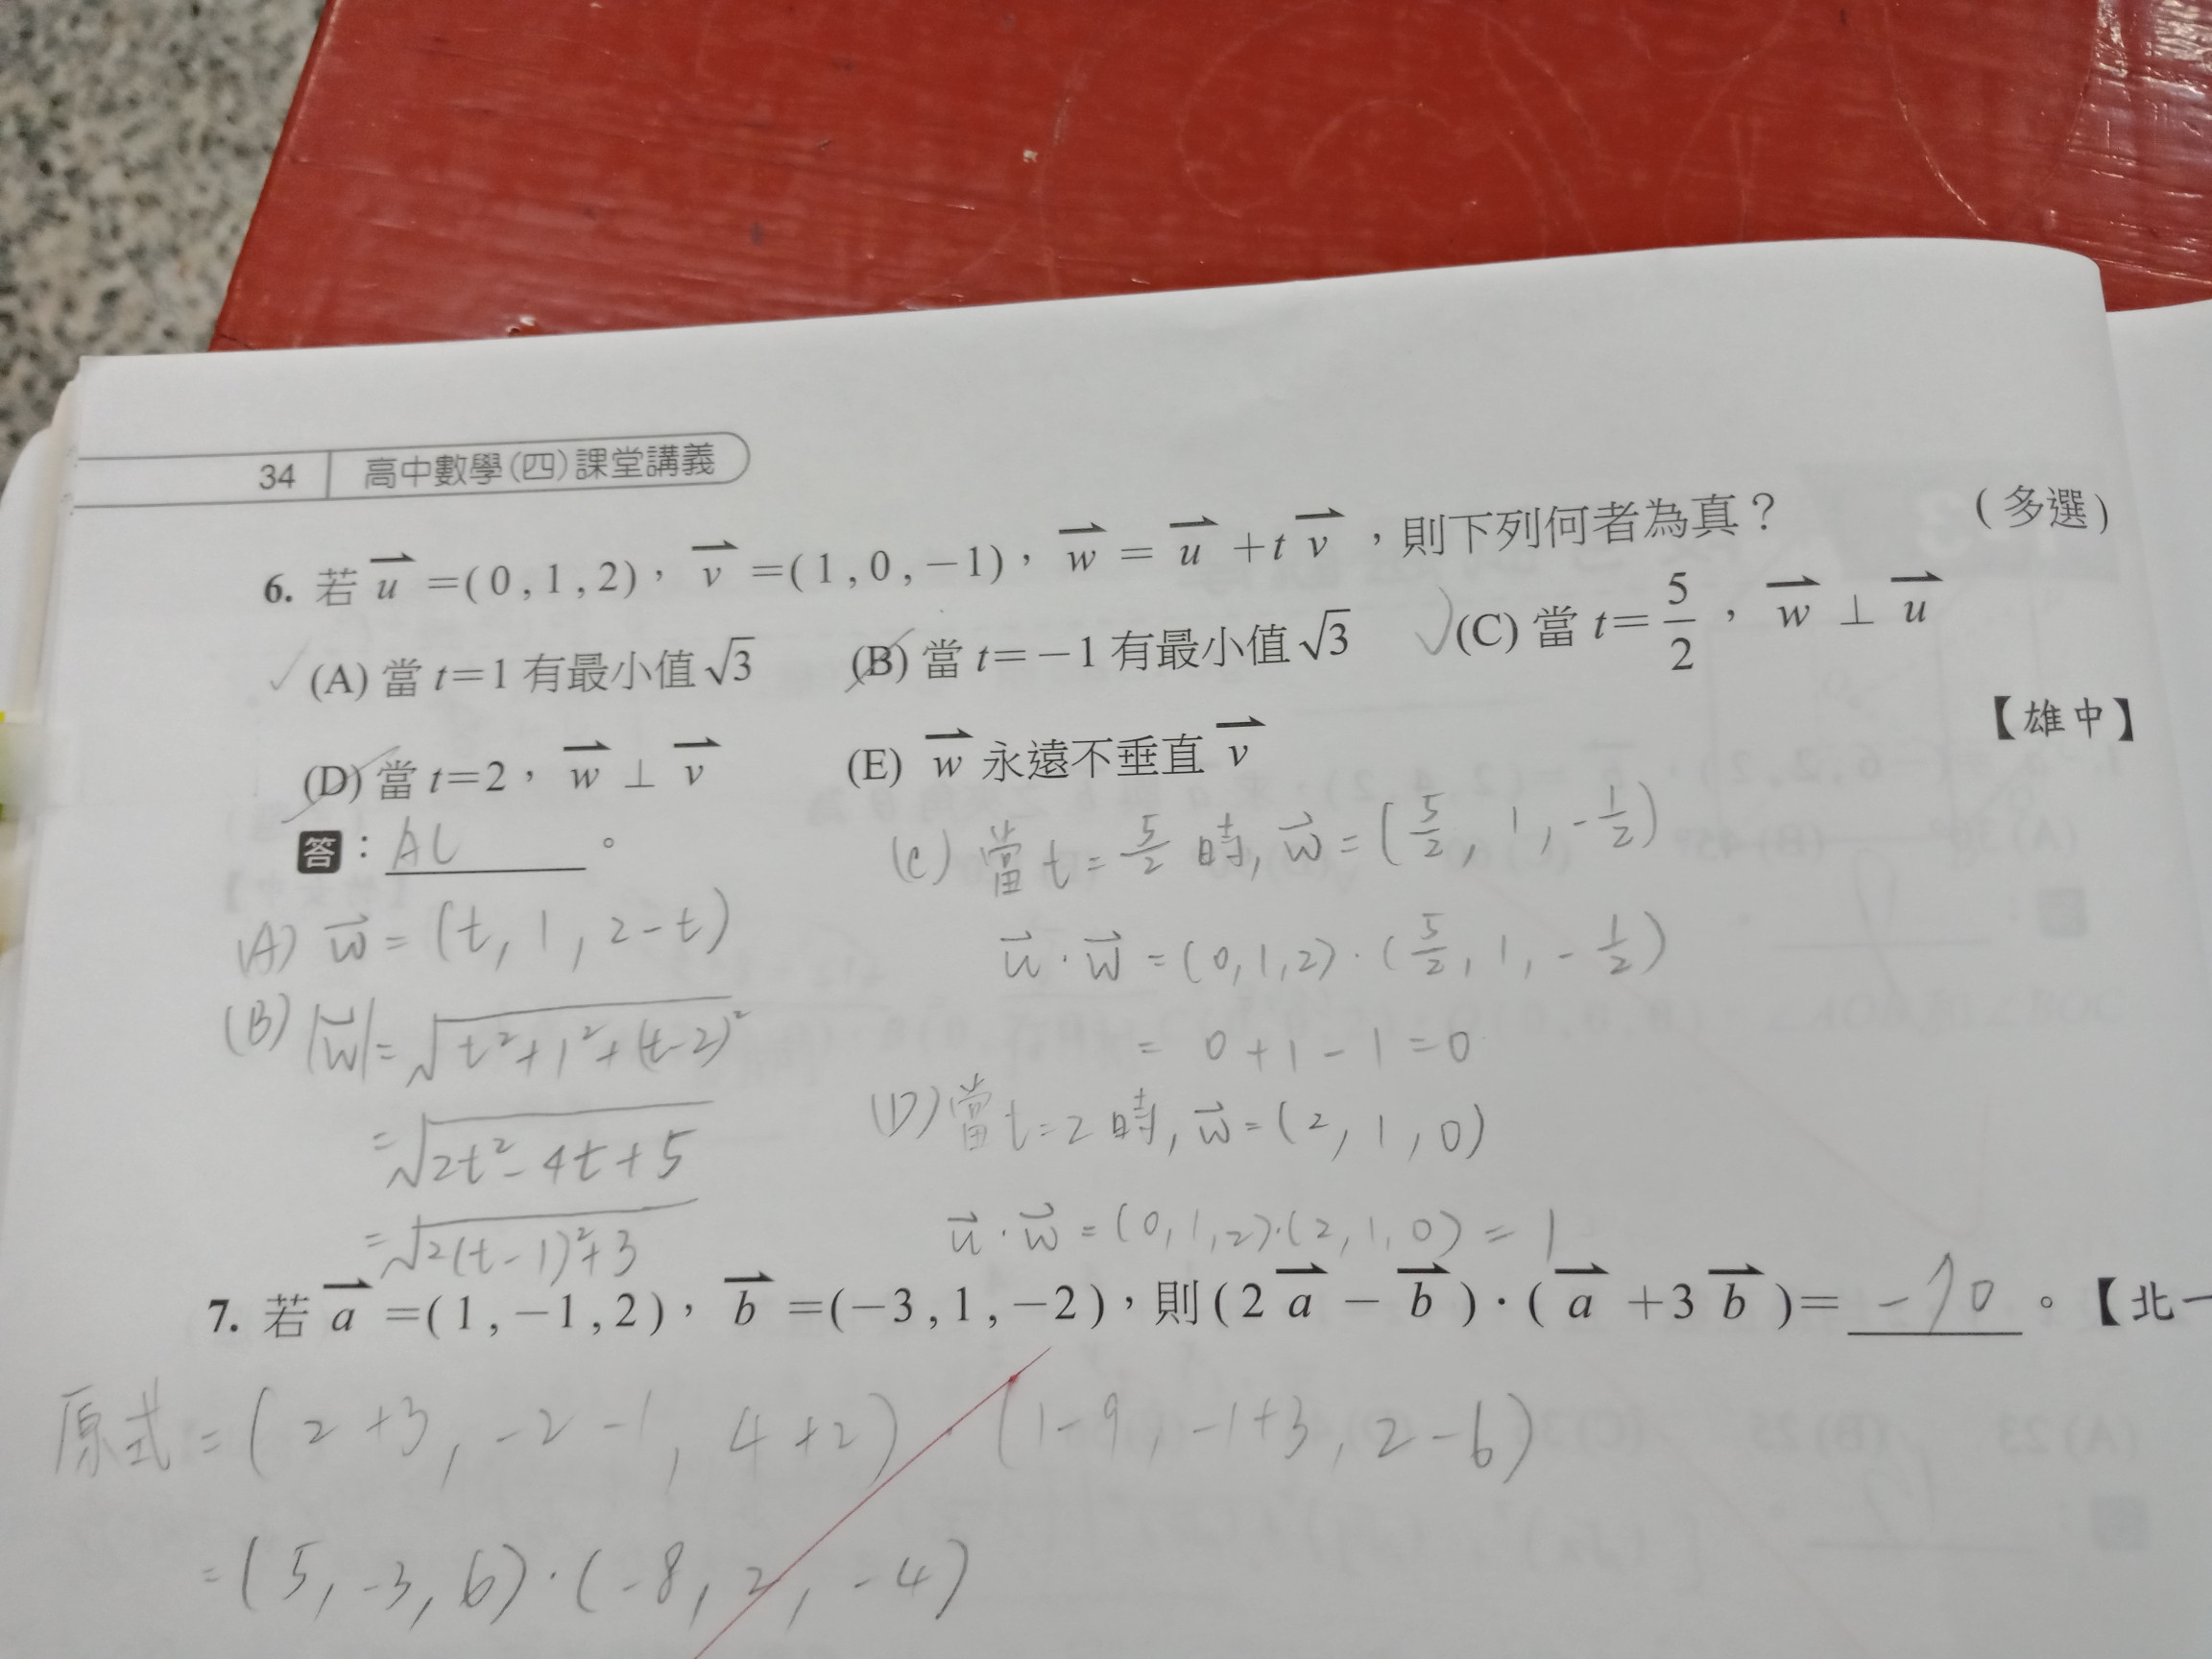 34 高中數學(四)課堂講義
6. 若 u =(0,1,2),v =(1,0,-1),w = u +t v ,則下列何者為真? (多選)
✓(A) 當 t=1 有最小值 √3 (B) 當 t=-1 有最小值 √3 ✓(C) 當 t= 5/2 , w ⊥ u
(D) 當 t=2 , w ⊥ v (E) w 永遠不垂直 v 【雄中】
答: AC 。
(A) w = (t, 1, 2-t)
(B) |w| = √t²+1²+(t-2)²
= √2t²-4t+5
= √2(t-1)²+3
(C) 當 t = 5/2 時, w = (5/2, 1, -1/2)
u · w = (0,1,2)·(5/2, 1, -1/2)
= 0+1-1=0
(D) 當 t=2 時, w = (2, 1, 0)
u · w = (0,1,2)·(2,1,0) = 1
7. 若 a =(1,-1,2),b =(-3,1,-2),則(2 a - b )·( a +3 b )= -70 。【北一
原式 = (2+3, -2-1, 4+2) · (1-9, -1+3, 2-6)
= (5, -3, 6)·(-8, 2, -4)